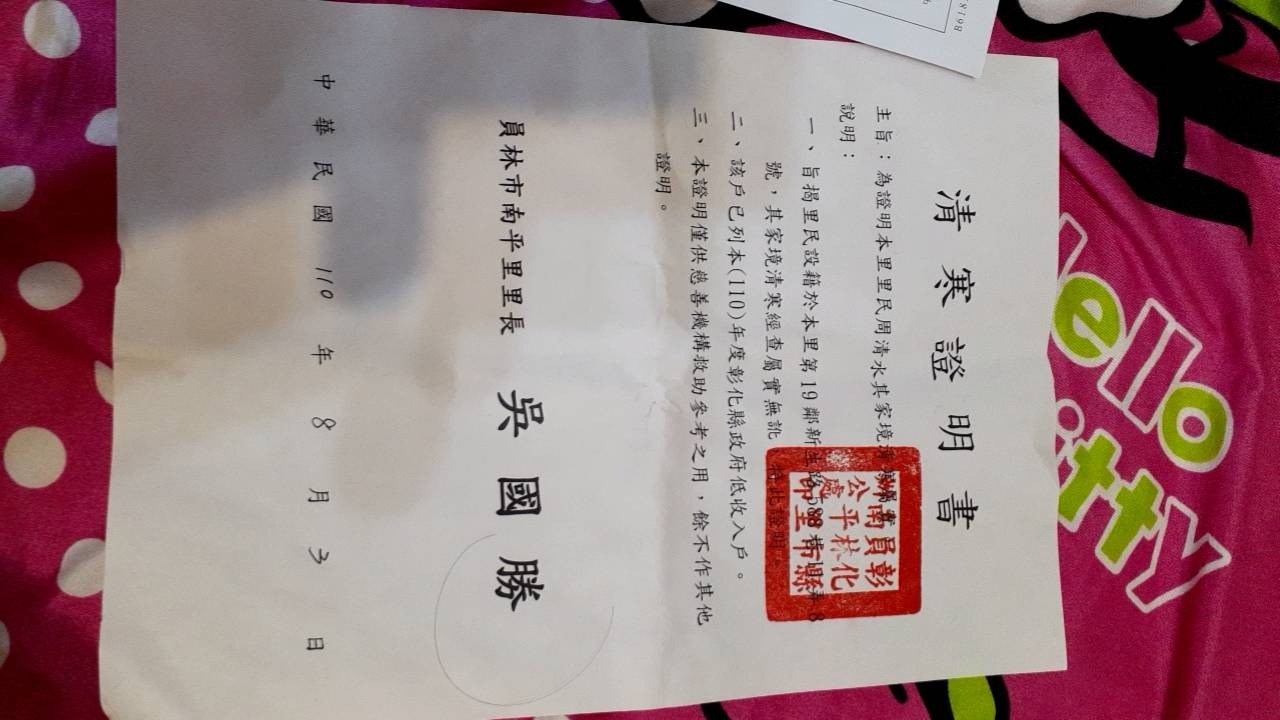 清寒證明書
主旨：為證明本里里民周清水其家境清寒屬實
說明：
一、旨揭里民設籍於本里第19鄰新生路588巷
號，其家境清寒經查屬實無訛 特此證明。
二、該戶已列本(110)年度彰化縣政府低收入戶。
三、本證明僅供慈善機構救助參考之用，餘不作其他
證明。
員林市南平里里長 吳國勝
中華民國 110 年 8 月 3 日
彰化縣
員林市
南平里
辦公處印
Hello
Kitty